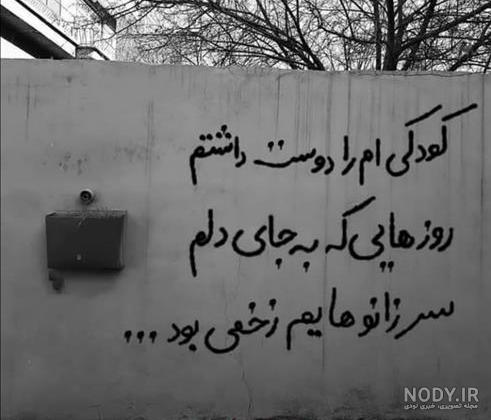 کودکی ام را دوست داشتم
روزهایی که به جای دلم
سر زانوهایم زخمی بود ...
NODY.IR
مجله تصویری، خبری نودی